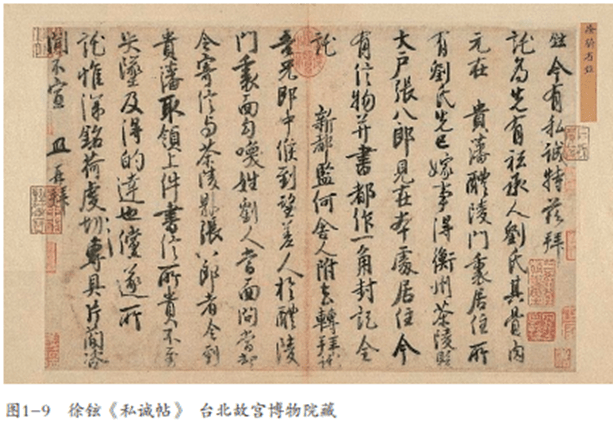 鉉今有私誠特茲拜
託為先有祗承人劉氏其骨肉
元在 貴藩醴陵門裏居住所
有劉氏先已嫁事得衡州茶陵縣
大戶張八郎見在本處居住今
有信物并書都作一角封記全
託 新都監何舍人附去轉拜託
吾兄郎中候到望差人於醴陵
門裏面勾喚姓劉人當面問當却
令寄信与茶陵縣張八郎者令到
貴藩取領上件書信所貴不至
失墜及得的達也儻遂所
託惟深銘荷虔切專具片簡咨
聞不宣 再拜
图1-9 徐铉《私诚帖》 台北故宫博物院藏